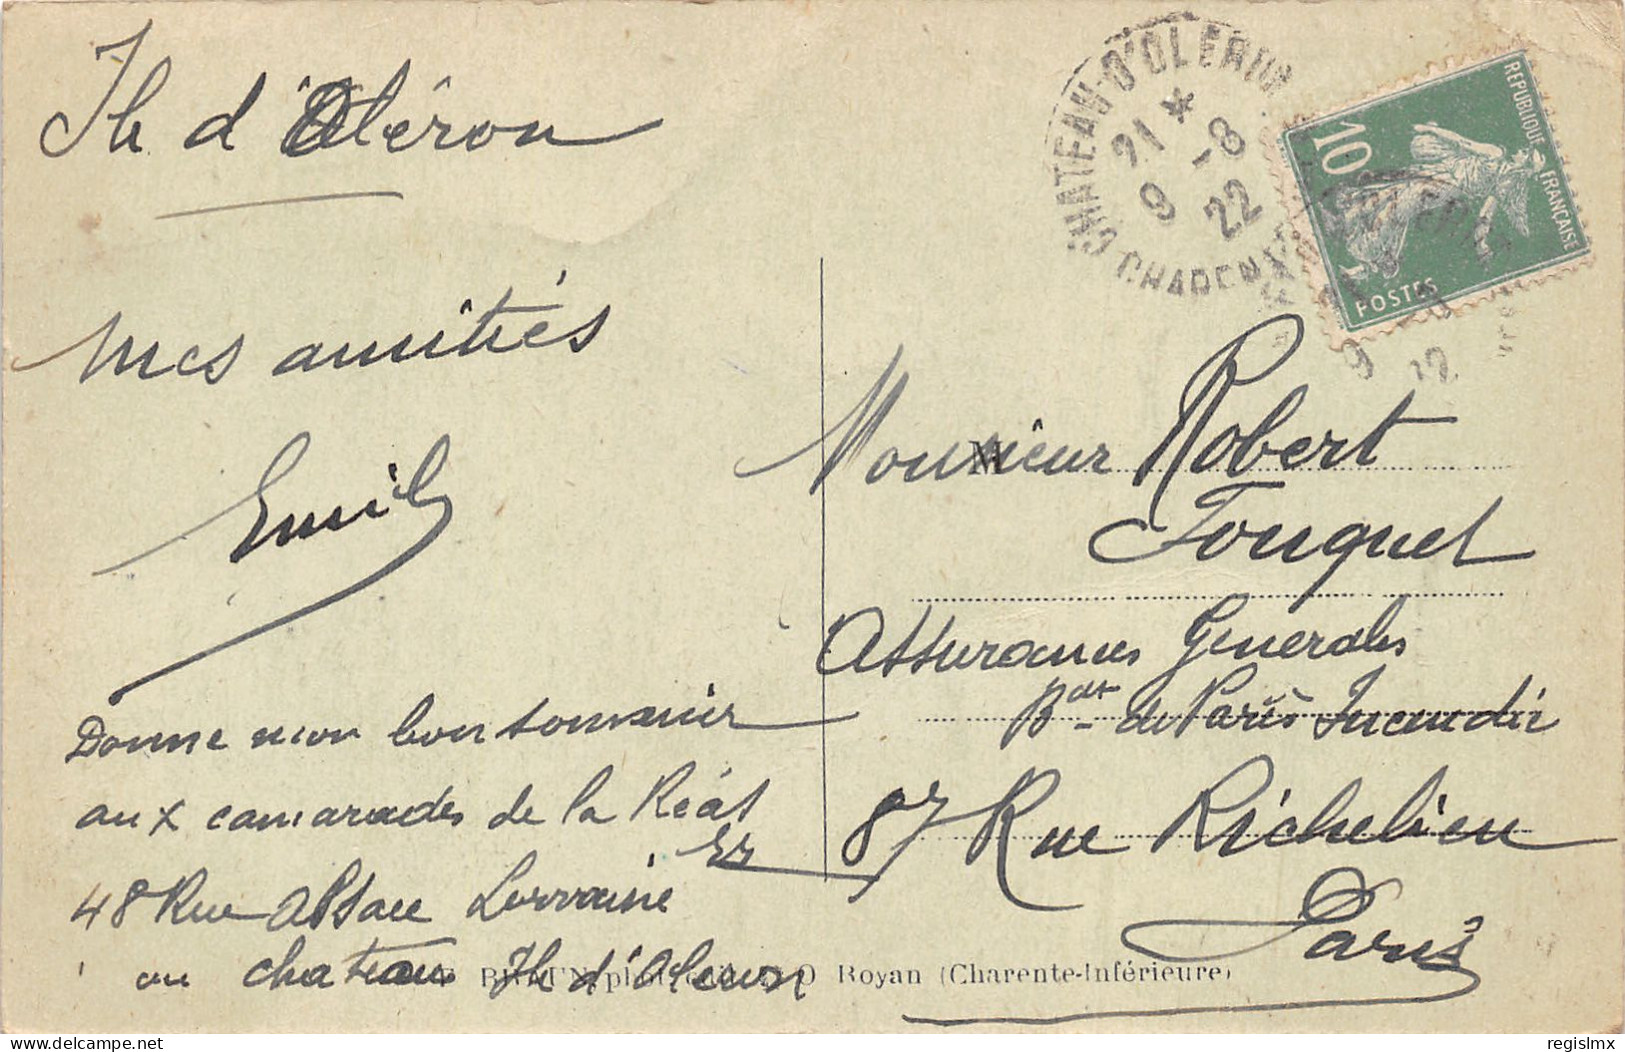 Ile d'Oléron
mes amitiés
Emile
Donne mon bon souvenir
aux camarades de la Réas
48 Rue Alsace Lorraine
au chateau Ile d'Oleron
CHATEAU-D'OLERON
21 *
9 -8
22
CHARENTE
REPUBLIQUE FRANÇAISE
10
POSTES
Monsieur Robert
Fouquet
Assurances Generales
Bat de Paris Incendie
87 Rue Richelieu
Paris
Royan (Charente-Inférieure)
delcampe.net
regislmx